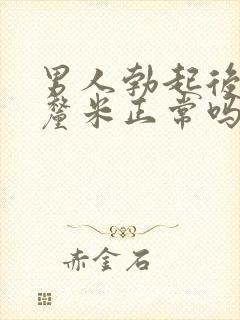 男人勃起後
釐米正常吗
赤金石